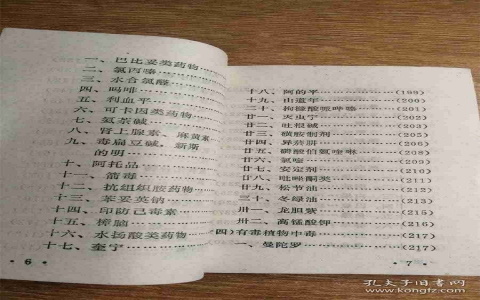 一、巴比妥类药物
二、氯丙嗪
三、水合氯醛
四、吗啡
五、利血平
六、可卡因类药物
七、氨茶碱
八、肾上腺素、麻黄素
九、毒扁豆碱、新斯
的明
十、阿托品
十一、箭毒
十二、抗组织胺药物
十三、苯妥英钠
十四、印防己毒素
十五、樟脑
十六、水杨酸类药物
十七、奎宁
· 6 ·
十八、阿的平 (199)
十九、山道年 (200)
二十、枸橼酸哌哔嗪 (201)
廿一、灭虫宁 (202)
廿二、吐根碱 (203)
廿三、磺胺制剂 (205)
廿四、异菸肼 (207)
廿五、磷酸伯氨喹啉 (208)
廿六、氯喹 (209)
廿七、安定剂 (210)
廿八、吡唑酮类 (211)
廿九、松节油 (212)
三十、冬绿油 (213)
卅一、龙胆紫 (215)
卅二、高锰酸钾 (216)
(四)有毒植物中毒 (217)
一、曼陀罗 (217)
· 7 ·
孔夫子旧书网
www.kongfz.com